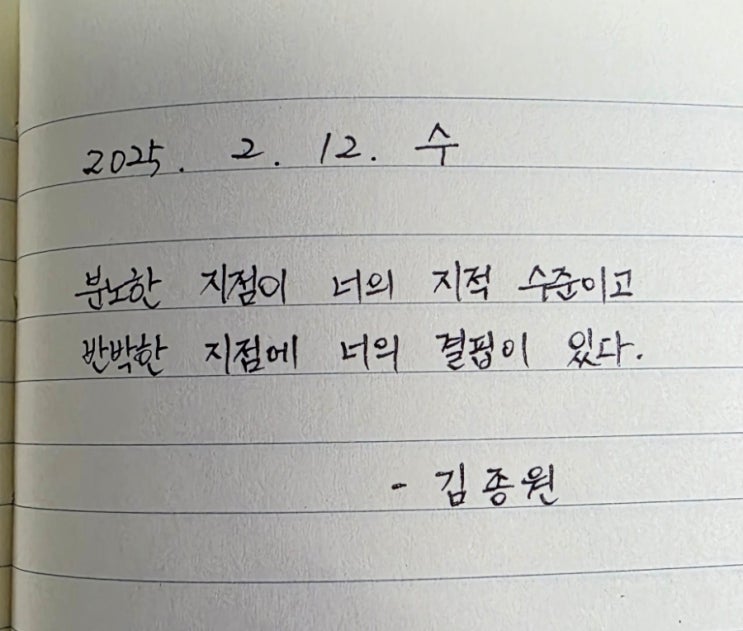 2025. 2. 12. 수
분노한 지점이 너의 지적 수준이고
반박한 지점에 너의 결핍이 있다.
- 김종원